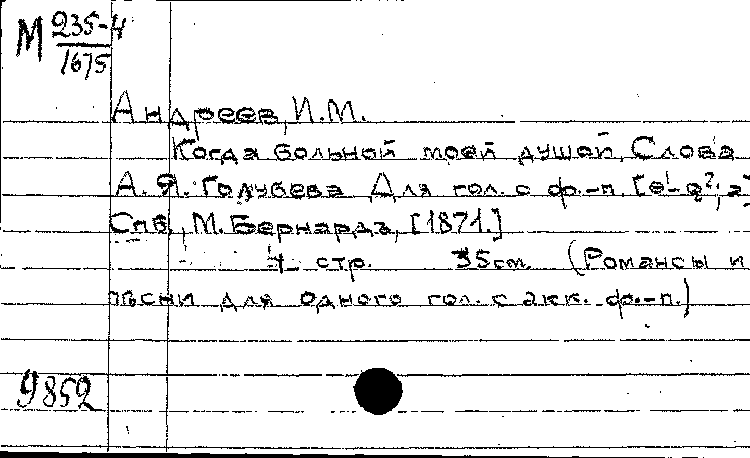 М 235-4
1675
Андреев, И.М.
Когда больной моей душой. Слова
А. Я. Голубева Для гол. с ф.-п. [e¹-g²; a]
Спб., М. Бернард, [1871.]
4 стр. 35 см. (Романсы и
пѣсни для одного гол. с акк. ф.-п.)
9852